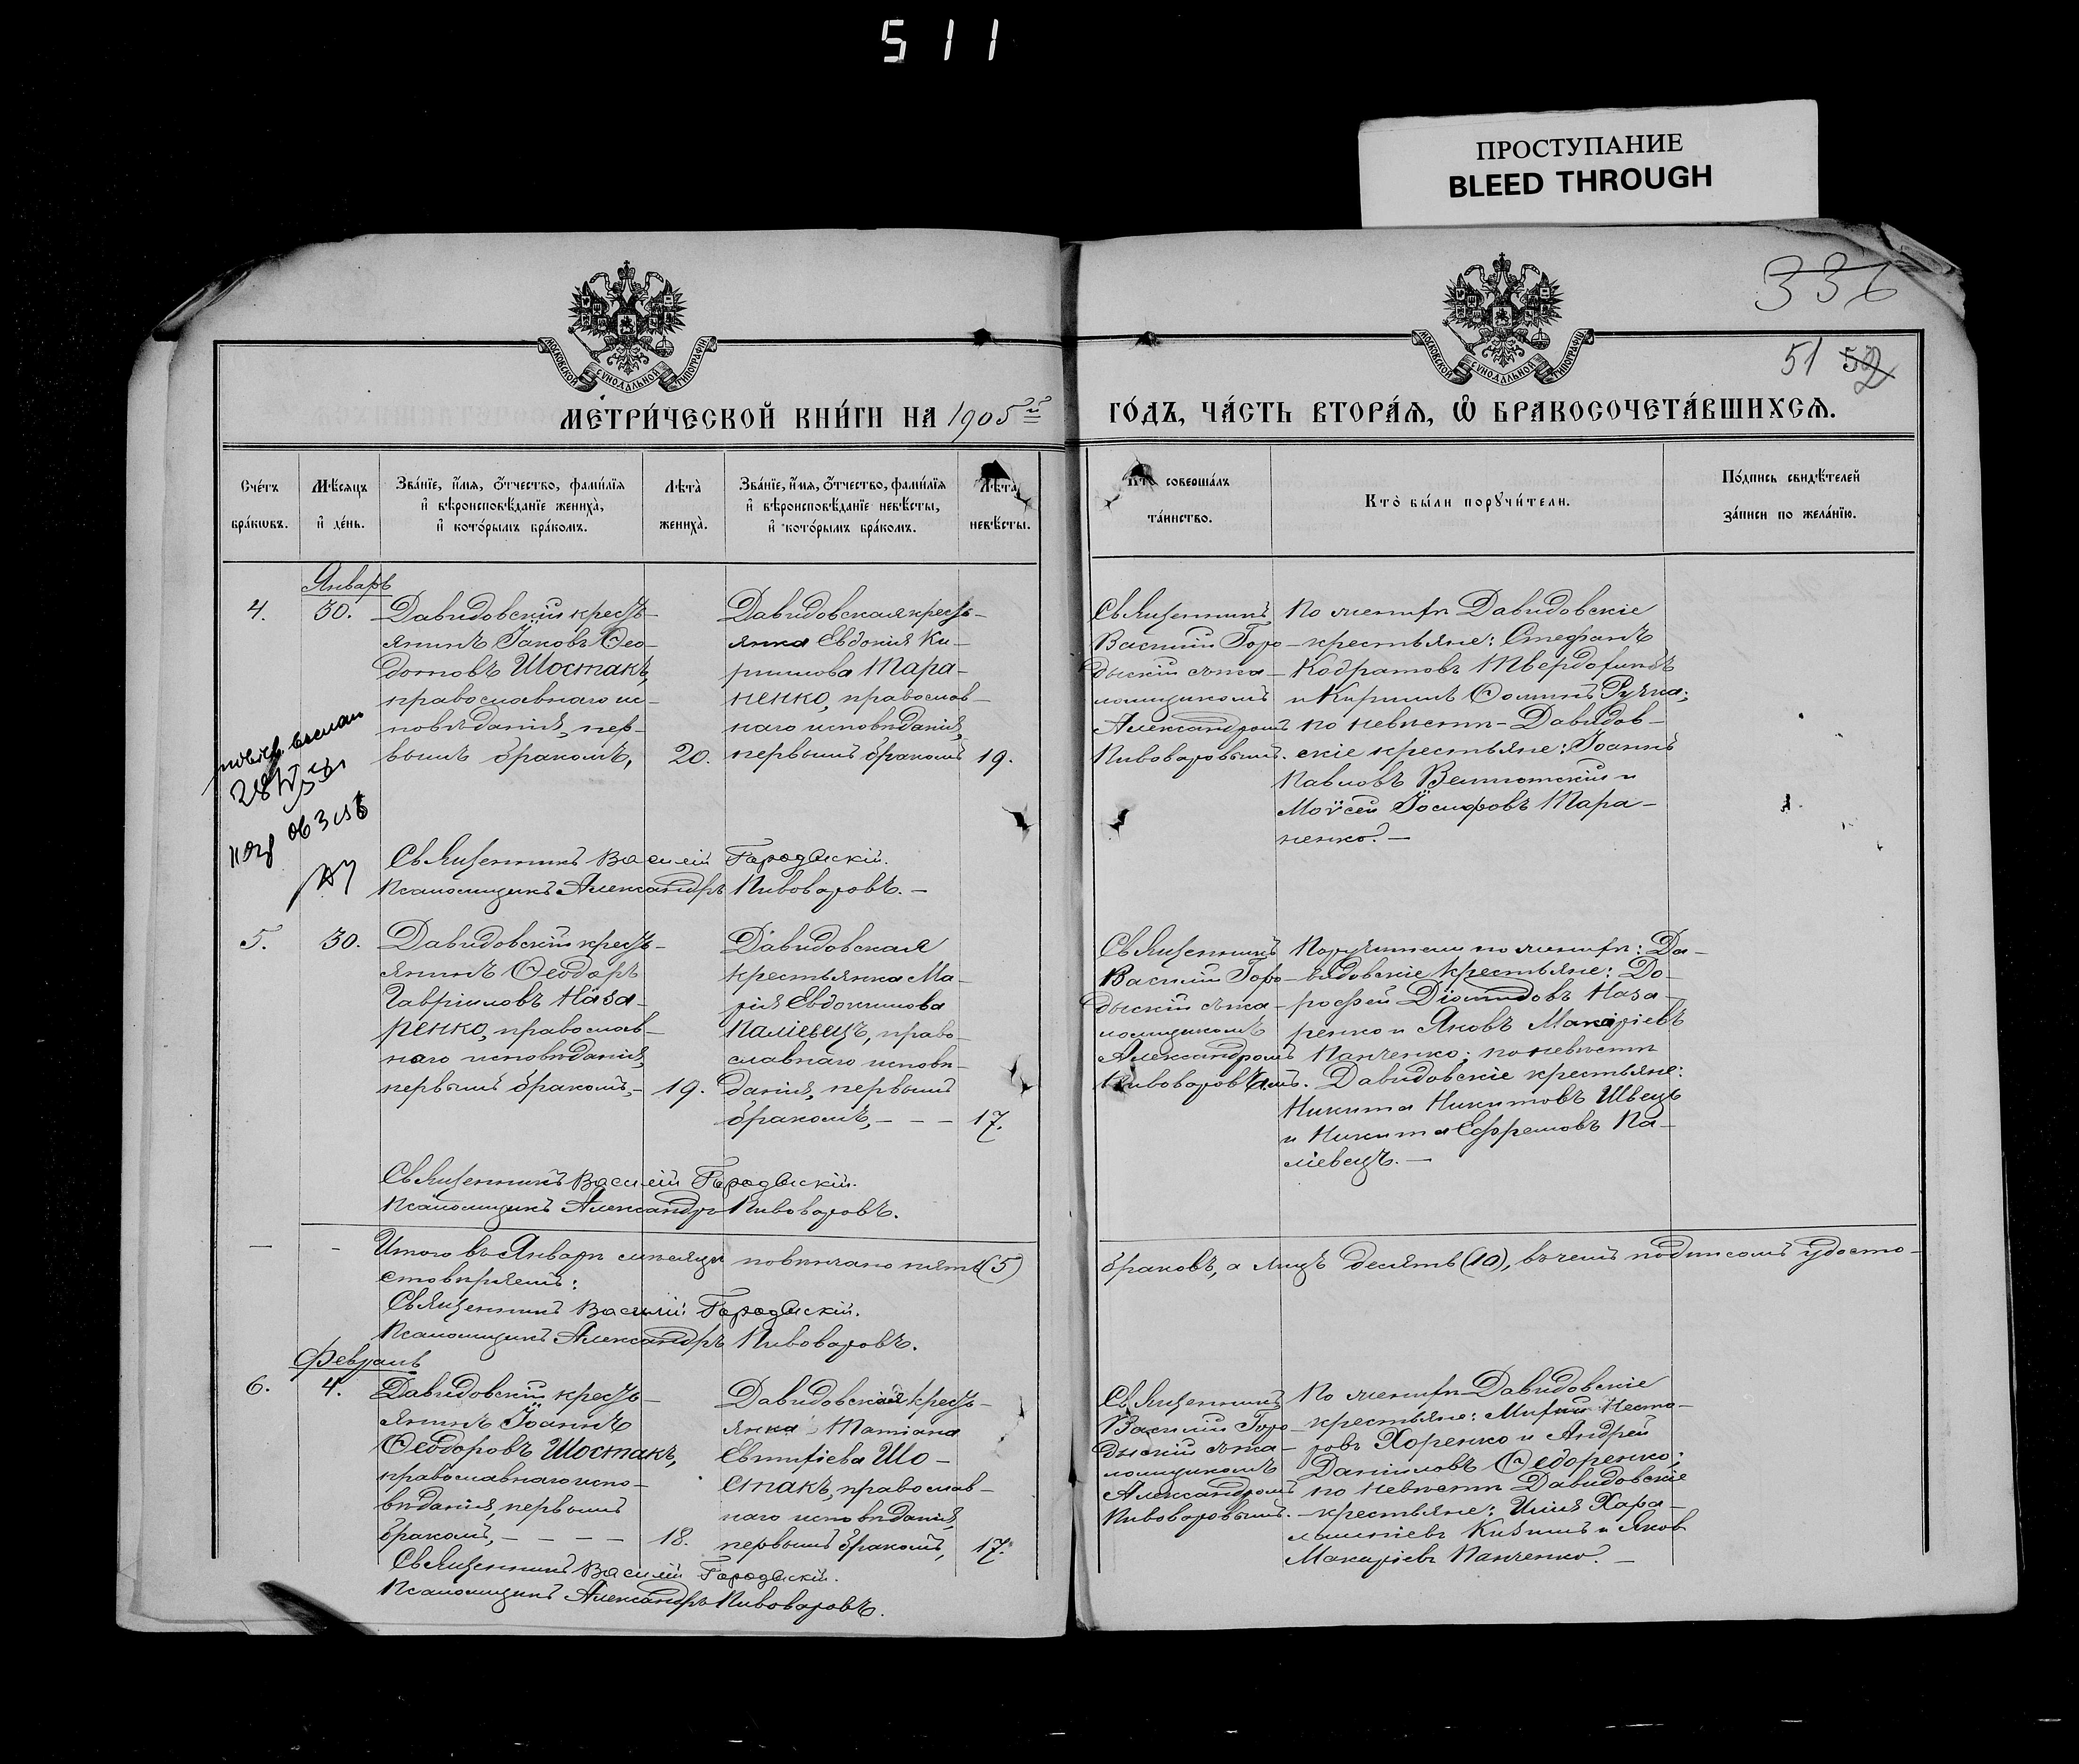 511
ПРОСТУПАНИЕ
BLEED THROUGH
336
51 52
МОСКОВСКОЙ СѴНОДАЛЬНОЙ ТИПОГРАФІИ
МОСКОВСКОЙ СѴНОДАЛЬНОЙ ТИПОГРАФІИ
МЕТРИ́ЧЕСКОЙ КНИ́ГИ НА 1905й
ГО́ДЪ, ЧА́СТЬ ВТОРА́Ѧ, Ѽ БРАКОСОЧЕТА́ВШИХСѦ.
Сче́тъ бра́кѡвъ.
Мѣ́сяцъ и҆ де́нь.
Зва́нїе, и҆́мѧ, ѻ҆́тчество, фами́лїѧ
и҆ вѣроисповѣ́данїе жениха̀,
и҆ кото́рымъ бра́комъ.
Лѣта̀ жениха̀.
Зва́нїе, и҆́мѧ, ѻ҆́тчество, фами́лїѧ
и҆ вѣроисповѣ́данїе невѣ́сты,
и҆ кото́рымъ бра́комъ.
Лѣта̀ невѣ́сты.
Кто̀ соверша́лъ
та́инство.
Кто̀ бы́ли порꙋчи́тели.
По́дпись свидѣ́телей
за́писи по жела́нїю.
Январь
4.
30.
Давидовскій кресть-
янинъ Іаковъ Ѳео-
дотовъ Шостакъ,
православнаго ис-
повѣданія, пер-
вымъ бракомъ,
20.
Давидовская кресть-
янка Евдокія Ки-
риллова Тара-
ненко, православ-
наго исповѣданія,
первымъ бракомъ
19.
Священникъ
Василій Горо-
дыскій съ пса-
ломщикомъ
Александромъ
Пивоваровымъ.
По женихѣ Давидовскіе
крестьяне: Стефанъ
Кодратовъ Твердохлѣбъ
и Кириллъ Ѳоминъ Ручка;
по невѣстѣ - Давидов-
скіе крестьяне: Іоаннъ
Павловъ
Моѵсей Іосифовъ Тара-
ненко. —
Священникъ Василій Городыскій.
Псаломщикъ Александръ Пивоваровъ. —
5.
30.
Давидовскій кресть-
янинъ Ѳеодоръ
Гавріиловъ Наза-
ренко, православ-
наго исповѣданія,
первымъ бракомъ, -
19.
Давидовская
крестьянка Ма-
рія Евдокимова
Паліевецъ, право-
славнаго исповѣ-
данія, первымъ
бракомъ, - - -
17.
Священникъ
Василій Горо-
дыскій съ пса-
ломщикомъ
Александромъ
Пивоваровымъ.
Поручители по женихѣ: Да-
видовскіе крестьяне: До-
рофей Діомидовъ Наза-
ренко и Яковъ Макаріевъ
Панченко; по невѣстѣ
Давидовскіе крестьяне:
Никита Никитовъ Швецъ
и Никита Ефремовъ Па-
ліевецъ. —
Священникъ Василій Городыскій.
Псаломщикъ Александръ Пивоваровъ.
Итого въ Январѣ мѣсяцѣ повѣнчано пять (5)
браковъ, а лицъ десять (10), въ чемъ подписомъ удосто-
стовѣряемъ:
Священникъ Василій Городыскій.
Псаломщикъ Александръ Пивоваровъ.
Февраль
6.
4.
Давидовскій кресть-
янинъ Іоаннъ
Ѳеодоровъ Шостакъ,
православнаго испо-
вѣданія, первымъ
бракомъ, - - - -
18.
Давидовская кресть-
янка Татіана
Евтихіева Шо-
стакъ, православ-
наго исповѣданія,
первымъ бракомъ,
17.
Священникъ
Василій Горо-
дыскій съ пса-
ломщикомъ
Александромъ
Пивоваровымъ.
По женихѣ Давидовскіе
крестьяне: Несто-
ровъ Хоренко и Андрей
Даніиловъ Ѳедоренко;
по невѣстѣ Давидовскіе
крестьяне: Илія Хара-
лампіевъ Кизимъ и Яковъ
Макаріевъ Панченко. —
Священникъ Василій Городыскій.
Псаломщикъ Александръ Пивоваровъ.